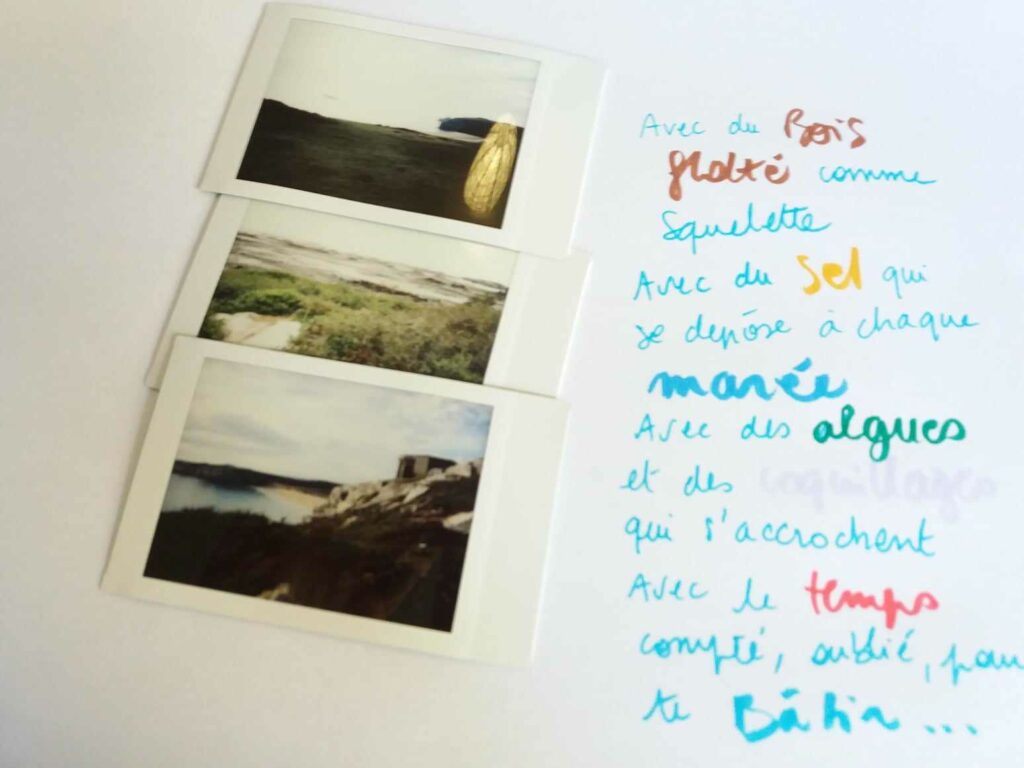 Avec du Bois
flotté comme
squelette
Avec du Sel qui
se dépôse à chaque
marée
Avec des algues
et des coquillages
qui s'accrochent
Avec le temps
compté, oublié, pour
te Bâtir...